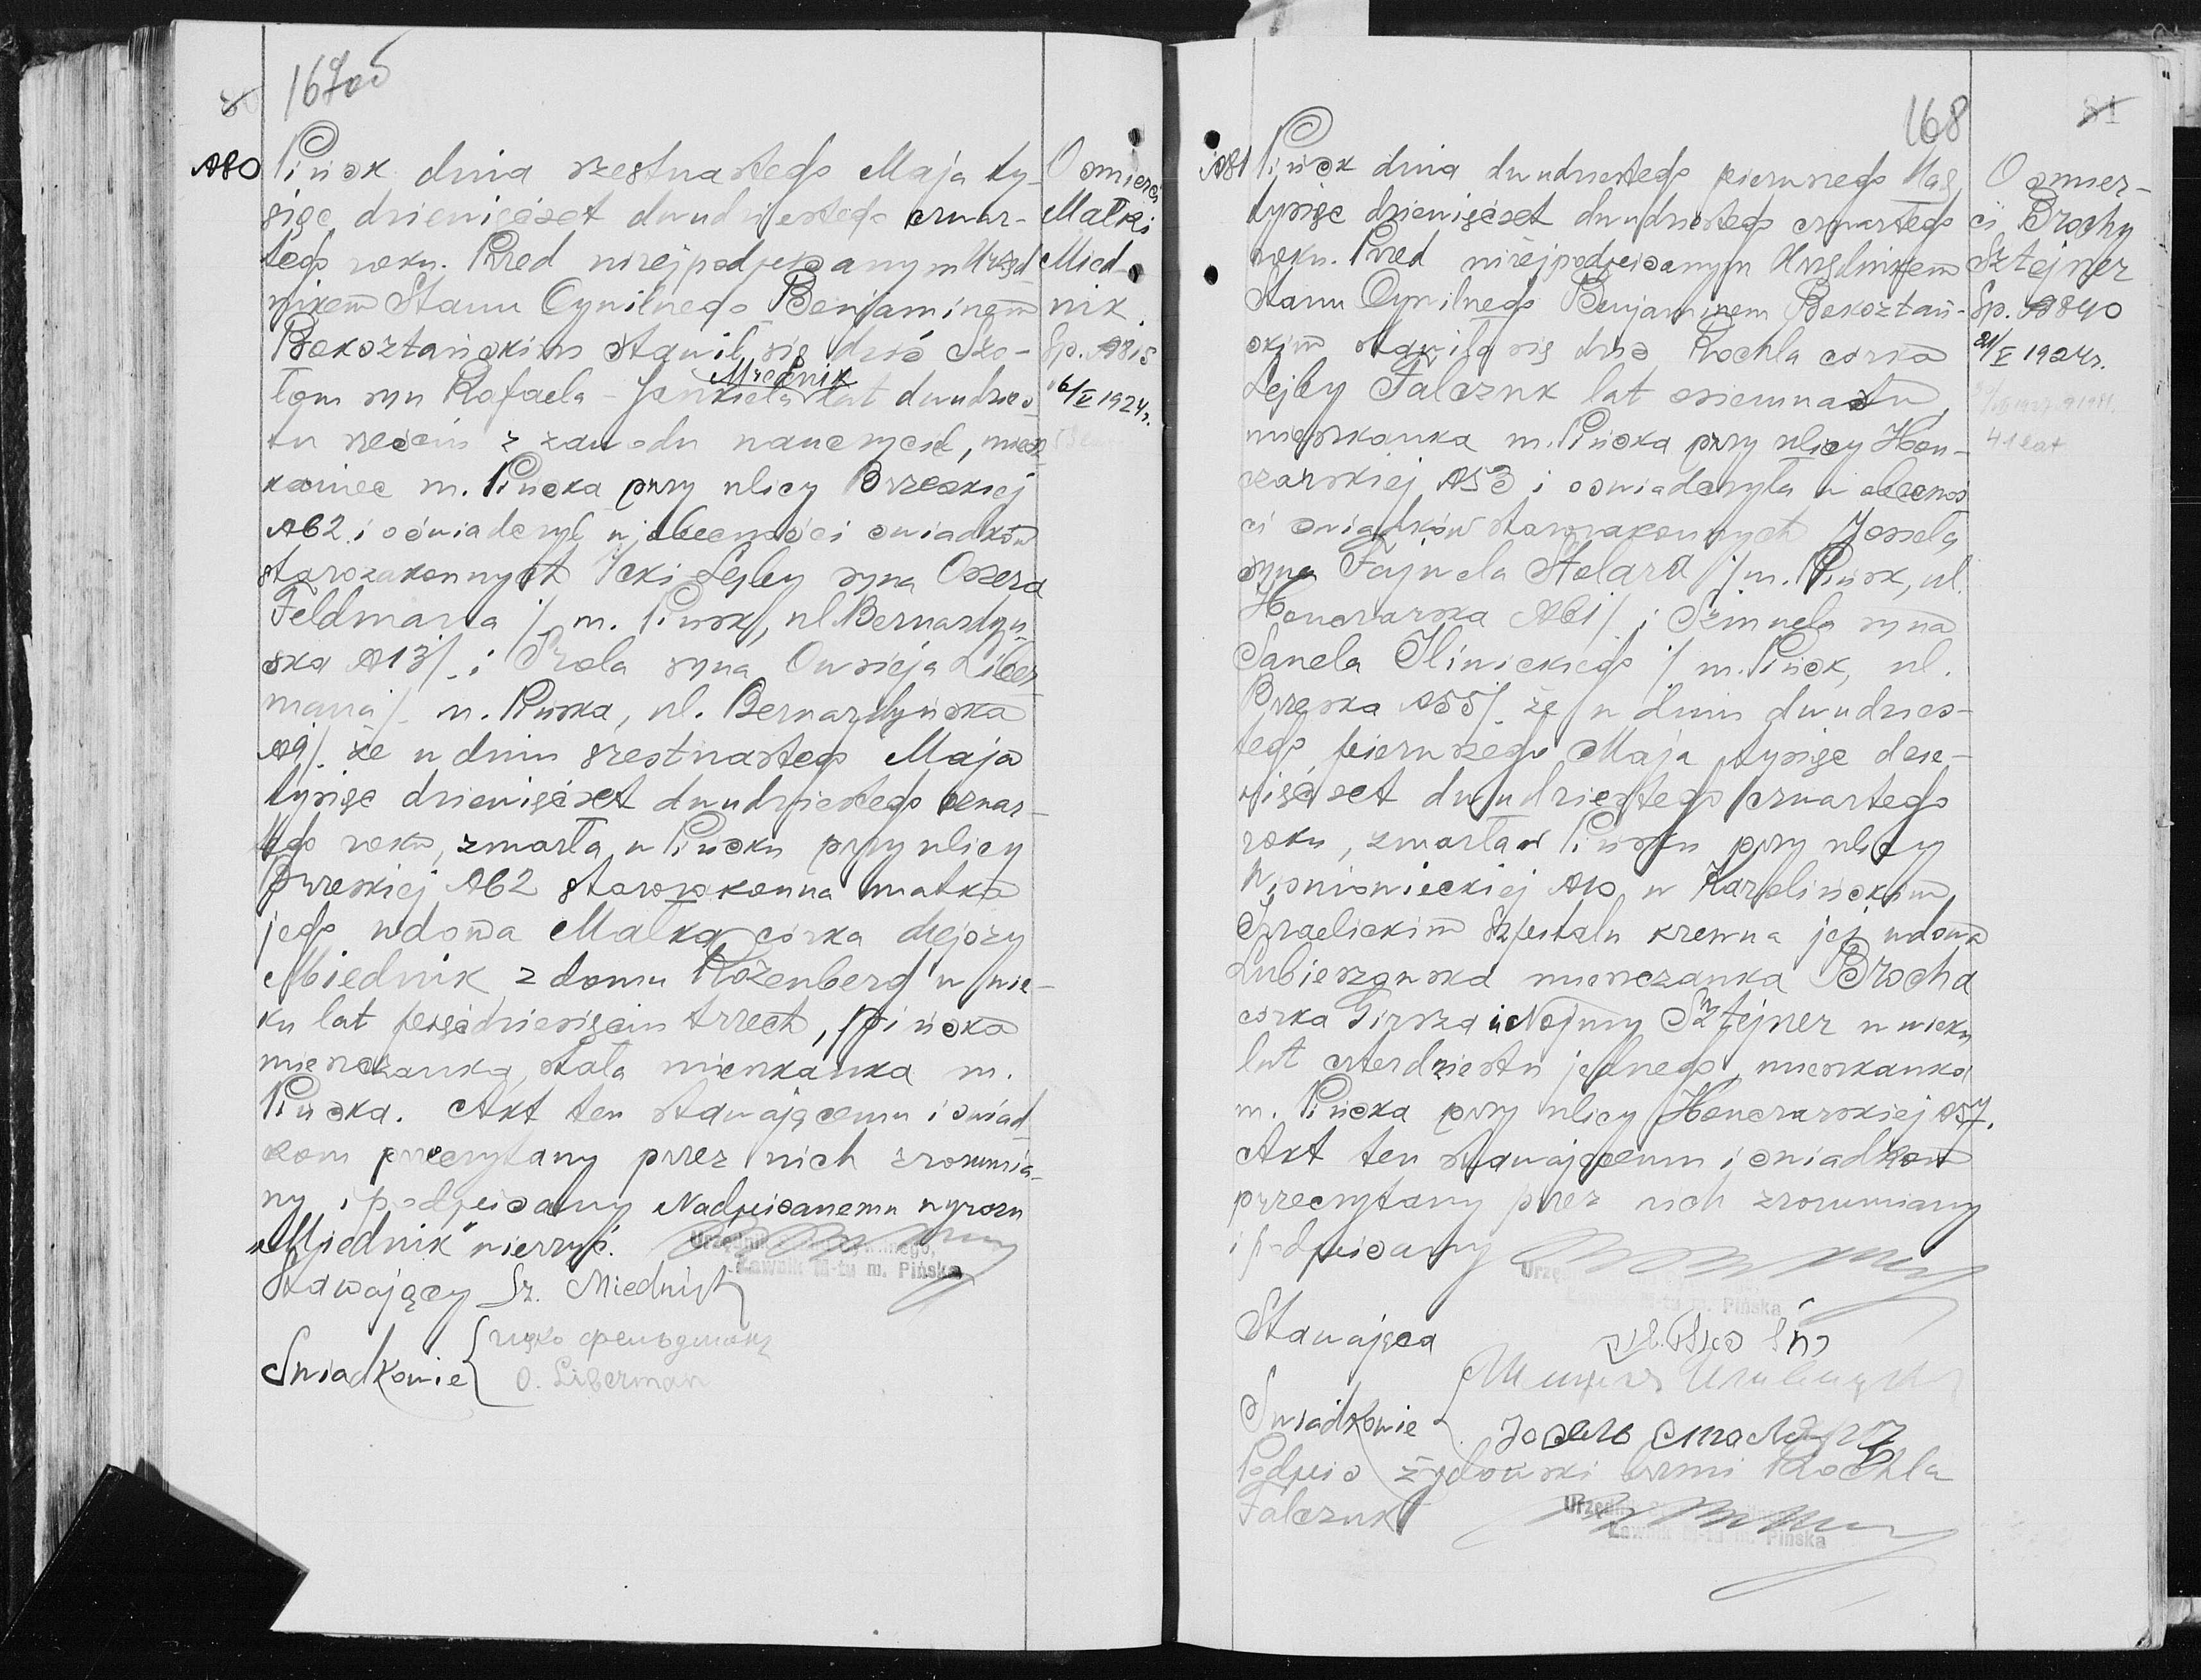 167
№80
Pińsk dnia szestnastego Maja ty-
siąc dziewięćset dwudziestego czwar-
tego roku. Przed niżejpodpisanym Urzęd
nikem Stanu Cywilnego Benjaminem
Boksztańskim stawił się dziś Szo-
łom syn Rafaela-Jankiela Miednik lat dwudzies-
tu sześciu z zawodu nauczyciel, miesz
kaniec m. Pińska przy ulicy Brzeskiej
№62 i oświadczył w obecności świadków
starozakonnych Icki Lejby syna Oszera
Feldmana /m. Pińsk, ul. Bernardyń-
ska №13/ i Srola syna Owsieja Liber
mana/ m. Pińska, ul. Bernardyńska
№9/ że w dniu szestnastego Maja
tysiąc dziewięćset dwudziestego czwar-
tego roku, zmarła w Pińsku przy ulicy
Brzeskiej №62 starozakonna matka
jego wdowa Małka córka Mejoży
Miednik z domu Rożenberg w wie-
ku lat pięćdziesięciu trzech, Pińska
mieszczanka, stała mieszkanka m.
Pińska. Akt ten stawającemu i świad
kom przeczytany przez nich zrozumia-
ny i podpisany Nadpisanemu wyrazu
"Miednik" wierzyć.
Urzędnik Stanu Cywilnego,
Ławnik M-tu m. Pińska
Stawający Sz. Miednik
Świadkowie
O. Liberman
O śmierci
Małki
Mied-
nik
Sp. №815
16/V 1924r.
168
81
№81
Pińsk dnia dwudziestego pierwszego Maja
tysiąc dziewięćset dwudziestego czwartego
roku. Przed niżejpodpisanym Urzędnikiem
Stanu Cywilnego Benjaminem Boksztań-
skim stawiła się dziś Rochla córka
Lejby Falczuk lat osiemnastu,
mieszkanka m. Pińska przy ulicy Hon-
czarskiej №53 i oświadczyła w obecnoś
ci świadków starozakonnych Josela
syna Fajwela Stolara /m. Pińsk, ul.
Honczarska №61/ i Szmuela syna
Sanela Ilinickiego /m. Pińsk, ul.
Brzeska №55/ że w dniu dwudzies-
tego pierwszego Maja tysiąc dzie-
więćset dwudziestego czwartego
roku, zmarła w Pińsku przy ulicy
Wiśniowieckiej №10, w Karolińskim
Izraelickim Szpitalu krewna jej wdowa
Lubieszowska mieszczanka Brocha
córka Girsza i Nojmy Sztejner w wieku
lat czterdziestu jednego, mieszkanka
m. Pińska przy ulicy Honczarskiej №57.
Akt ten stawającemu i świadkom
przeczytany przez nich zrozumiany
i podpisany
Ławnik M-tu m. Pińska
Stawająca
Świadkowie
Podpis żydowski brzmi Rochla
Falczuk
Ławnik M-tu m. Pińska
O śmier-
ci Brochy
Sztejner
Sp. №840
21/V 1924r.
41 lat